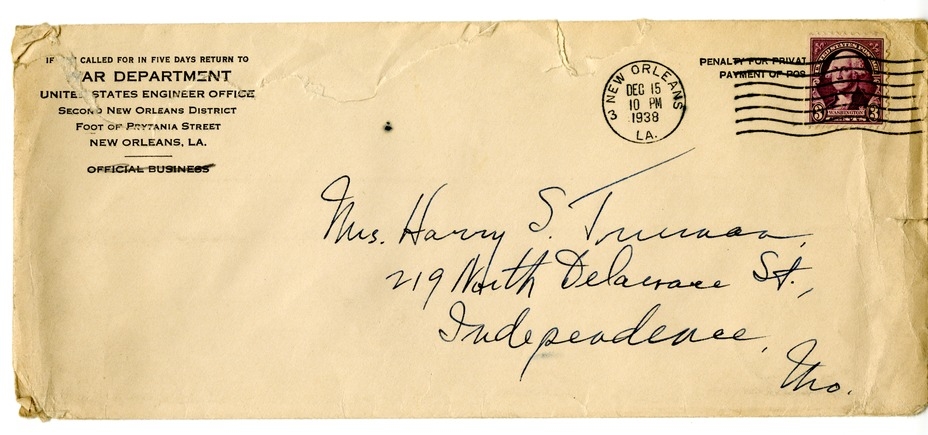 IF CALLED FOR IN FIVE DAYS RETURN TO
WAR DEPARTMENT
UNITED STATES ENGINEER OFFICE
SECOND NEW ORLEANS DISTRICT
FOOT OF PRYTANIA STREET
NEW ORLEANS, LA.
OFFICIAL BUSINESS
NEW ORLEANS
3
DEC 15
10 PM
1938
LA.
PENALTY FOR PRIVAT
PAYMENT OF POS
UNITED STATES POSTAGE
3 WASHINGTON 3
Mrs. Harry S. Truman,
219 North Delaware St.,
Independence,
Mo.